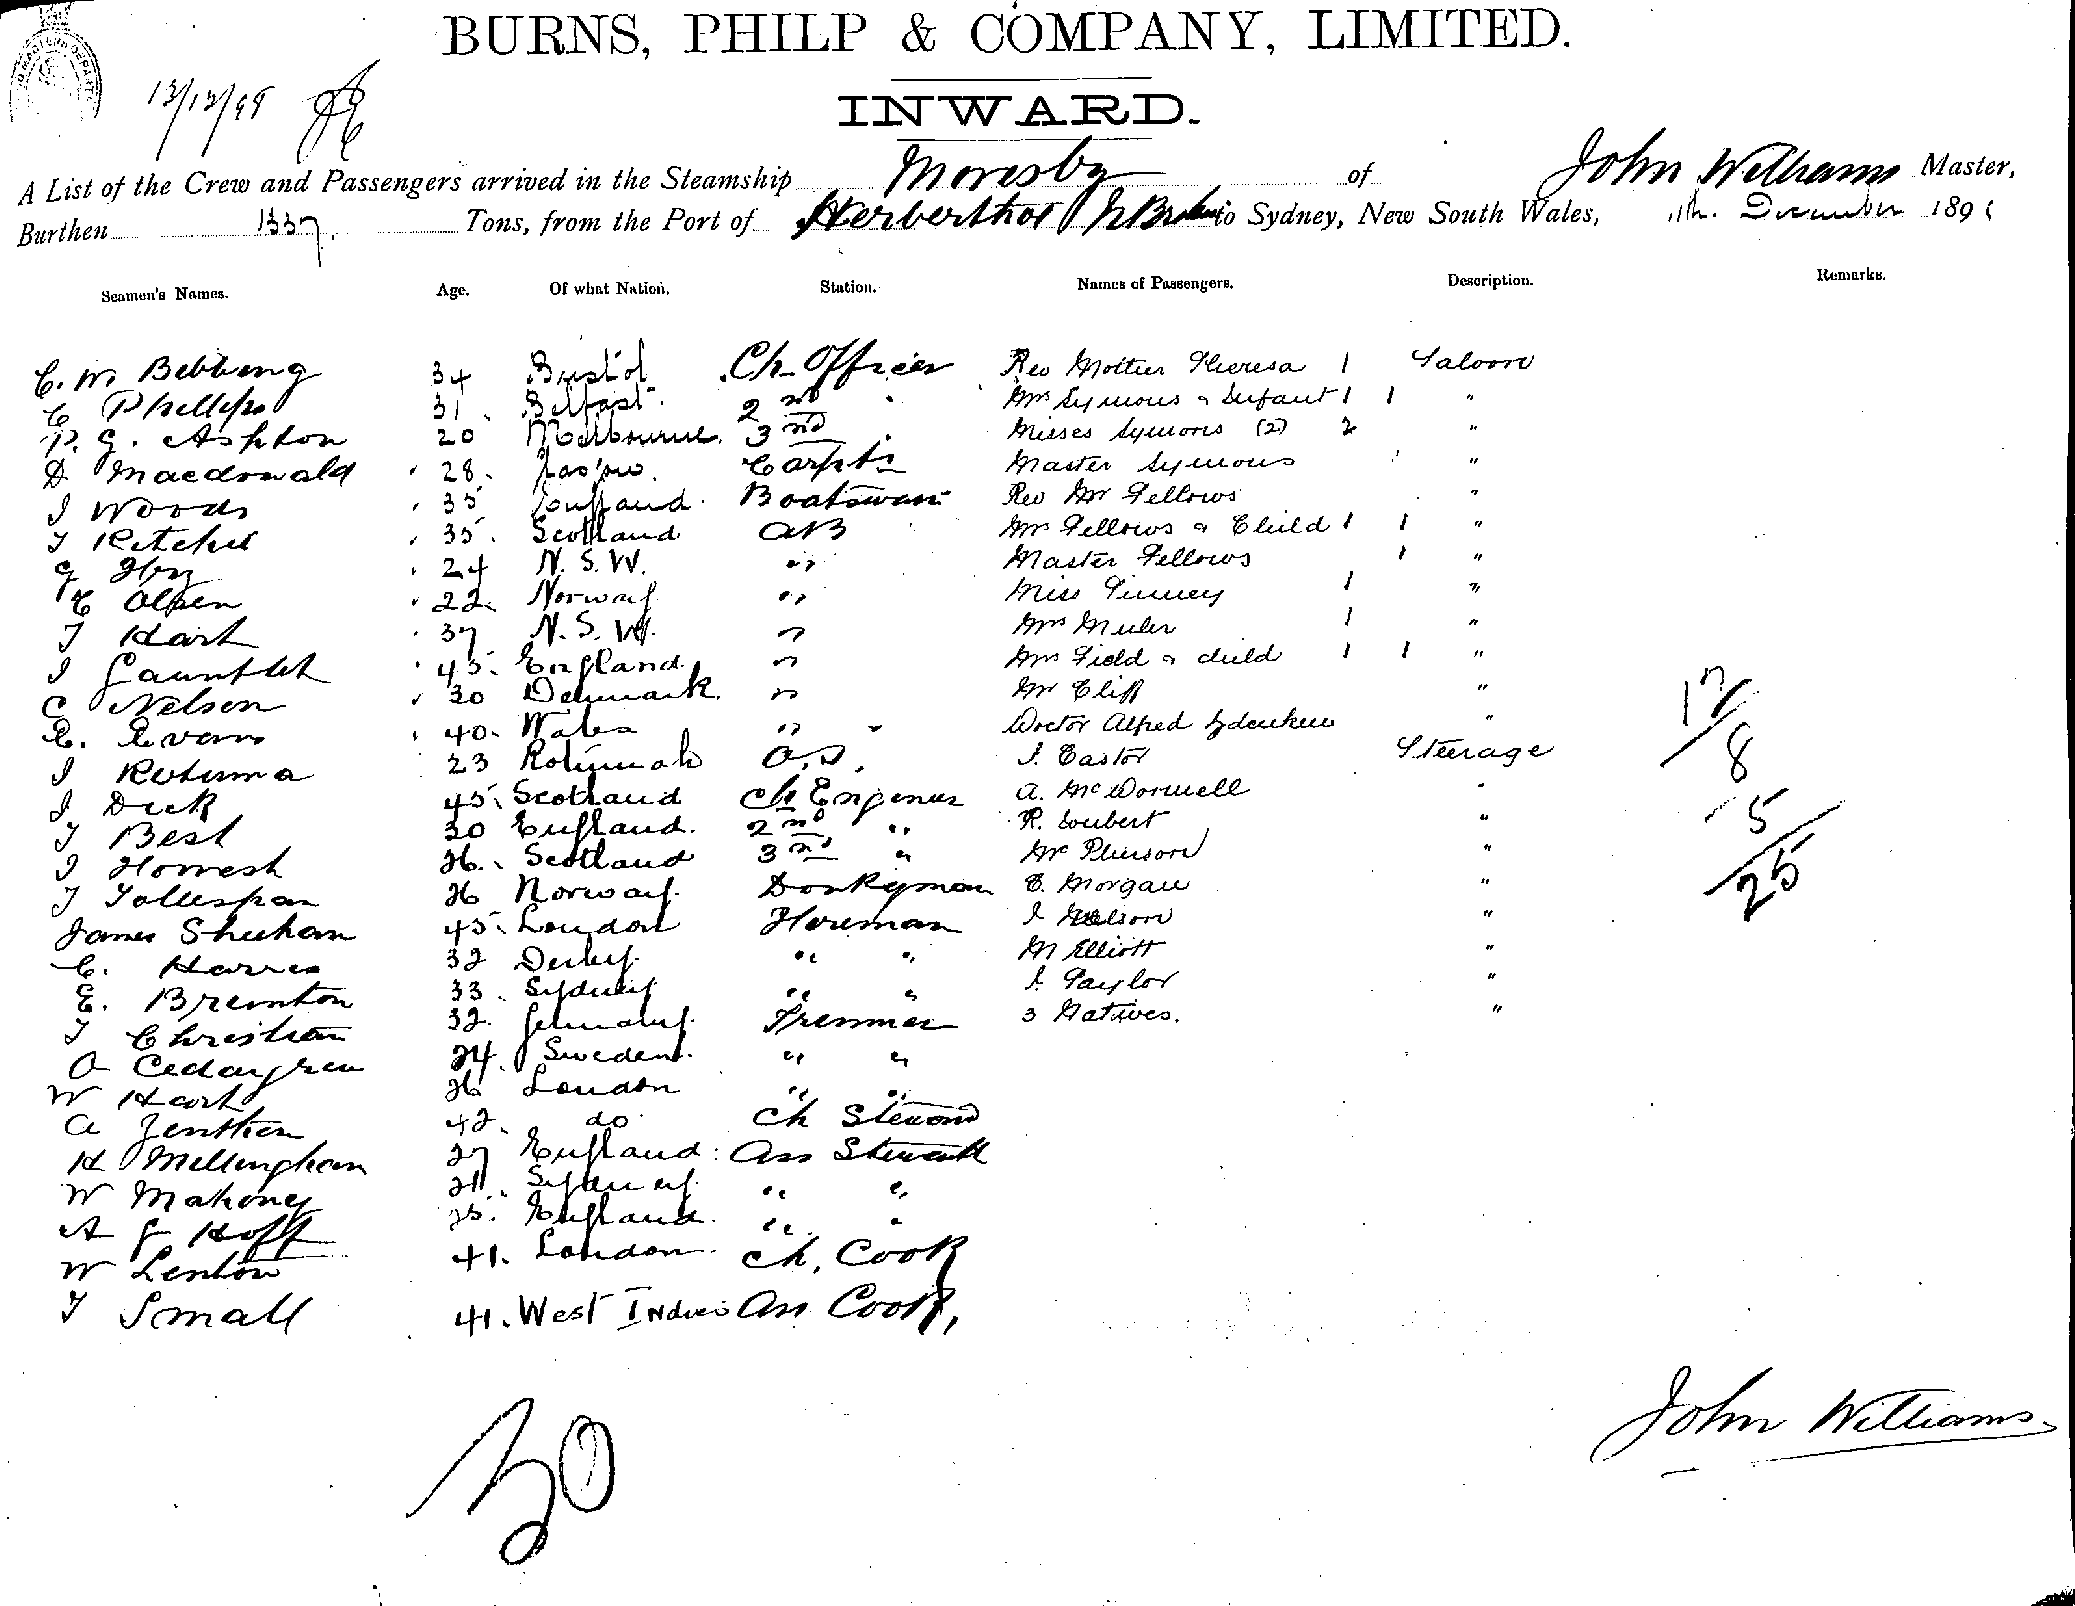 BURNS, PHILP & COMPANY, LIMITED.
INWARD.
A List of the Crew and Passengers arrived in the Steamship Moresby of John Williams Master,
Burthen 1337. Tons, from the Port of Herbertshoe to Sydney, New South Wales, 11th. December 189
Seamen's Names. Age. Of what Nation. Station. Names of Passengers. Description. Remarks.
C. M 34 Bristol Ch. Officer Rev Mother Theresa 1 Saloon
C Phillips 31 Belfast 2nd " Mrs Symons & Infant 1 1 "
P. G. Ashton 20 Melbourne. 3rd " Misses Symons (2) 2 "
D Macdonald 28. Carptr Master Symons 1 "
J Woods 35 England. Boatswain Rev Mr Fellows "
T Ritchie 35. Scotland AB Mrs Fellows & Child 1 1 "
G 24 N. S. W. " Master Fellows 1 "
C Olsen 22. Norway " Miss 1 "
T Hart 37 N. S. W. " Mrs 1 "
J Gauntlet 45. England. " Mrs Field & child 1 1 "
C Nelson 30 Denmark. " Mr Cliff "
E. Evans 40. Wales " " Doctor Alfred "
J Rotuma 23 Rotumah O.S. J. Castor Steerage
J Dick 45. Scotland Ch Engineer A. McDonnell "
T Best 30 England. 2nd " R. "
J 36. Scotland 3rd " "
T 26 Norway. Donkeyman E. Morgan "
James Sheehan 45. London Fireman J Nelson "
C. Harris 32 Derby. " " M Elliott "
E. 33. Sydney " " J. Taylor "
T Christian 32. Germany. Trimmer 3 Natives. "
O 24. Sweden. " "
W Hart 26 London " "
A 42. do Ch Steward
H Millingham 27 England. Ass Steward
W Mahoney 21. Sydney. " "
A G Hoff 25. England. " "
W Lenton 41. London. Ch. Cook
T Small 41. West Indies Ass Cook,
17
8
5
25
30
John Williams